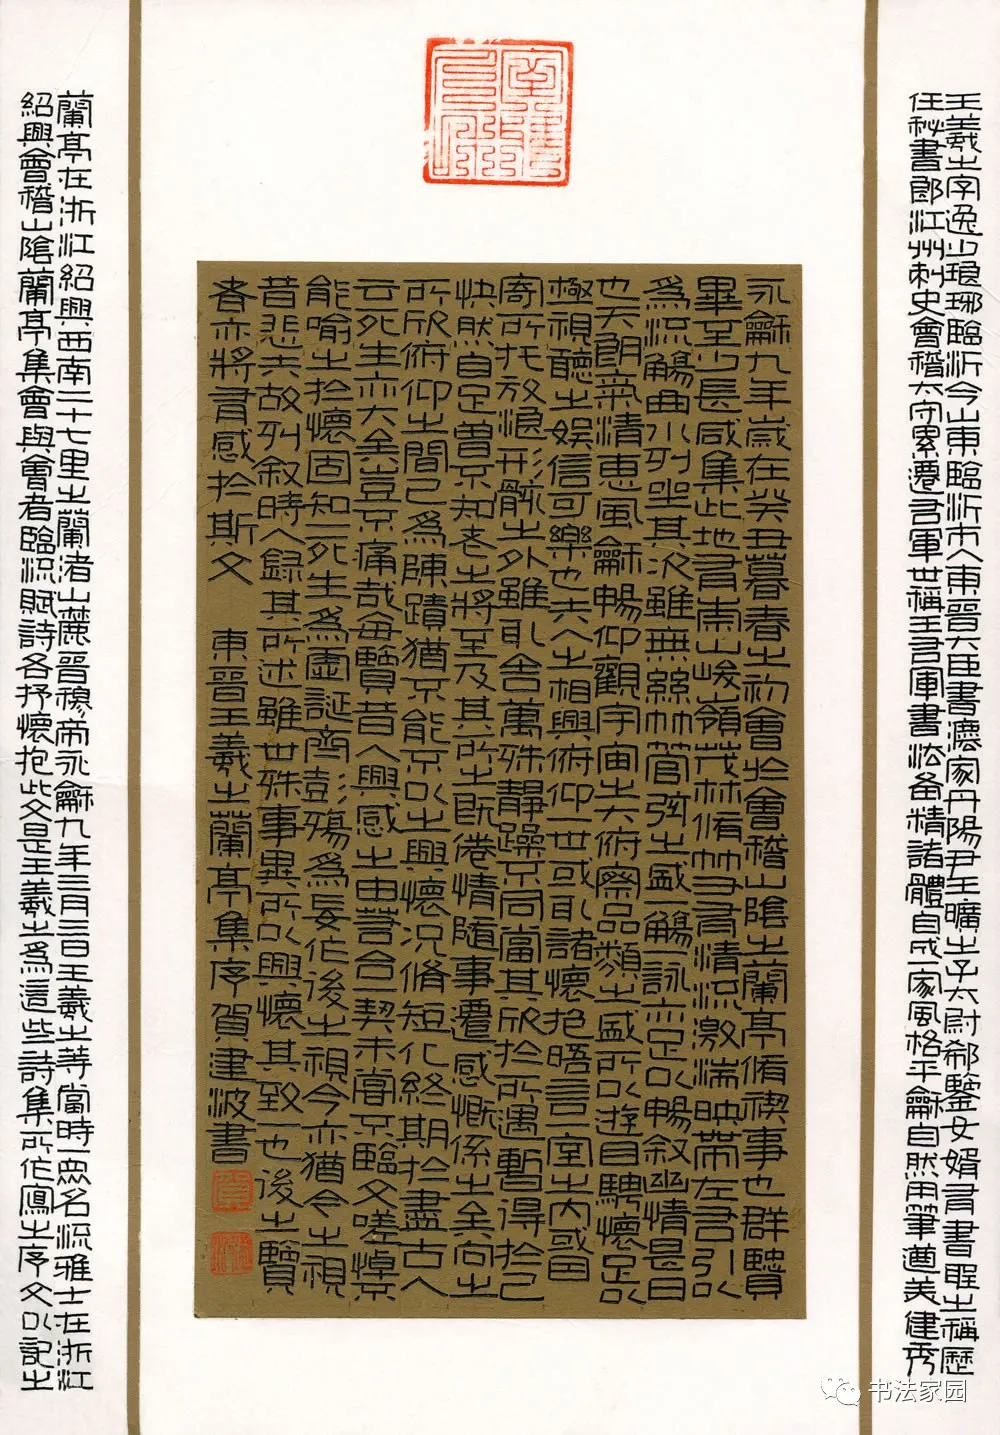 王羲之字逸少琅琊臨沂今山東臨沂市人東晉大臣書法家丹陽尹王曠之子太尉郗鑒女婿有書聖之稱歷
任秘書郎江州刺史會稽太守累遷右軍世稱王右軍書法备精諸體自成一家風格平龢自然用筆遒美健秀
永龢九年歲在癸丑暮春之初會於會稽山陰之蘭亭脩禊事也群賢
畢至少長咸集此地有崇山峻嶺茂林脩竹又有清流激湍映帶左右引以
為流觴曲水列坐其次雖無絲竹管弦之盛一觴一詠亦足以暢敘幽情是日
也天朗氣清惠風龢暢仰觀宇宙之大俯察品類之盛所以遊目騁懷足以
極視聽之娛信可樂也夫人之相與俯仰一世或取諸懷抱晤言一室之內或因
寄所托放浪形骸之外雖取舍萬殊靜躁不同當其欣於所遇暫得於己
快然自足曾不知老之將至及其所之既倦情随事遷感慨係之矣向之
所欣俯仰之間已為陳蹟猶不能不以之興懷況脩短化終期於盡古人
云死生亦大矣豈不痛哉每覽昔人興感之由若合一契未嘗不臨文嗟悼不
能喻之於懷固知一死生為虛誕齊彭殤為妄作後之視今亦猶今之視
昔悲夫故列敘時人錄其所述雖世殊事異所以興懷其致一也後之覽
者亦將有感於斯文 東晉王羲之蘭亭集序賀建波書
蘭亭在浙江紹興西南二十七里之蘭渚山麓晉穆帝永龢九年三月三日王羲之等當時一眾名流雅士在浙江
紹興會稽山陰蘭亭集會與會者臨流賦詩各抒懷抱此文是王羲之為這些詩集所作寫之序文以記之
书法家园